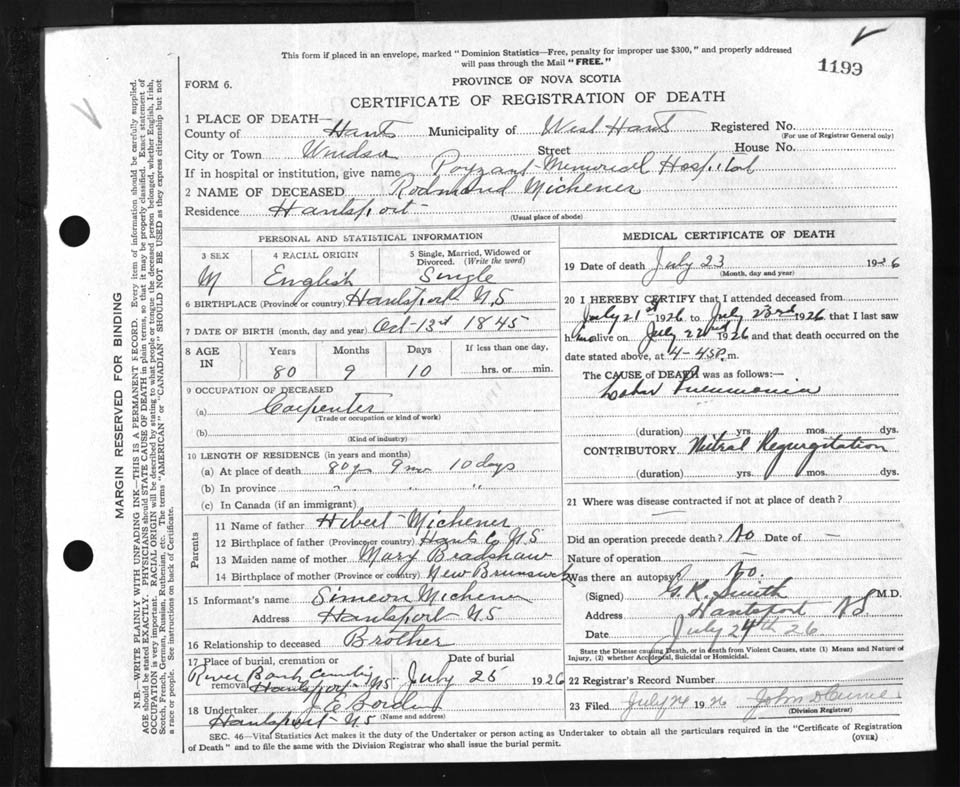 This form if placed in an envelope, marked "Dominion Statistics—Free, penalty for improper use $300," and properly addressed
will pass through the Mail "FREE."
1199
FORM 6.
PROVINCE OF NOVA SCOTIA
CERTIFICATE OF REGISTRATION OF DEATH
1 PLACE OF DEATH—
County of Hants Municipality of West Hants Registered No.
(For use of Registrar General only)
City or Town Windsor Street House No.
If in hospital or institution, give name Payzant Memorial Hospital
2 NAME OF DECEASED Michener
Residence Hantsport
(Usual place of abode)
PERSONAL AND STATISTICAL INFORMATION
3 SEX 4 RACIAL ORIGIN 5 Single, Married, Widowed or
Divorced. (Write the word)
M English Single
6 BIRTHPLACE (Province or country) Hantsport N.S
7 DATE OF BIRTH (month, day and year) Oct-13th 1845
8 AGE IN Years Months Days If less than one day,
80 9 10 hrs. or min.
9 OCCUPATION OF DECEASED
(a) Carpenter
(Trade or occupation or kind of work)
(b)
(Kind of industry)
10 LENGTH OF RESIDENCE (in years and months)
(a) At place of death 80 yrs 9 mo 10 days
(b) In province " " "
(c) In Canada (if an immigrant)
Parents
11 Name of father Hibert Michener
12 Birthplace of father (Province or country) Hants Co N.S
13 Maiden name of mother Mary Bradshaw
14 Birthplace of mother (Province or country) New Brunswick
15 Informant's name Simeon Michener
Address Hantsport N.S
16 Relationship to deceased Brother
17 Place of burial, cremation or removal Date of burial
River Bank
Hantsport N.S July 25 1926
18 Undertaker J.E. Borden
Hantsport N.S (Name and address)
MEDICAL CERTIFICATE OF DEATH
19 Date of death July 23 1926
(Month, day and year)
20 I HEREBY CERTIFY that I attended deceased from
July 21st 1926 to July 23rd 1926 that I last saw
him alive on July 22nd 1926 and that death occurred on the
date stated above, at 4-45 P.m.
The CAUSE of DEATH was as follows:—
Lobar Pneumonia
(duration) yrs. mos. dys.
CONTRIBUTORY Mitral Regurgitation
(duration) yrs. mos. dys.
21 Where was disease contracted if not at place of death?
Did an operation precede death? No Date of —
Nature of operation —
Was there an autopsy? No.
(Signed) G.K. Smith M.D.
Address Hantsport N.S.
Date July 24th 26
State the Disease causing Death, or in death from Violent Causes, state (1) Means and Nature of
Injury, (2) whether Accidental, Suicidal or Homicidal.
22 Registrar's Record Number
23 Filed July 24 1926 John D
(Division Registrar)
SEC. 46—Vital Statistics Act makes it the duty of the Undertaker or person acting as Undertaker to obtain all the particulars required in the "Certificate of Registration
of Death" and to file the same with the Division Registrar who shall issue the burial permit.
(OVER)
MARGIN RESERVED FOR BINDING
N.B.—WRITE PLAINLY WITH UNFADING INK—THIS IS A PERMANENT RECORD. Every item of information should be carefully supplied.
AGE should be stated EXACTLY. PHYSICIANS should STATE CAUSE OF DEATH in plain terms, so that it may be properly classified. Exact statement of
OCCUPATION is very important. RACIAL ORIGIN will be described by stating to what people or tongue the deceased person belonged, whether English, Irish,
Scotch, French, German, Russian, Ruthenian, etc. The terms "AMERICAN" or "CANADIAN" SHOULD NOT BE USED as they express citizenship but not
a race or people. See instructions on back of Certificate.